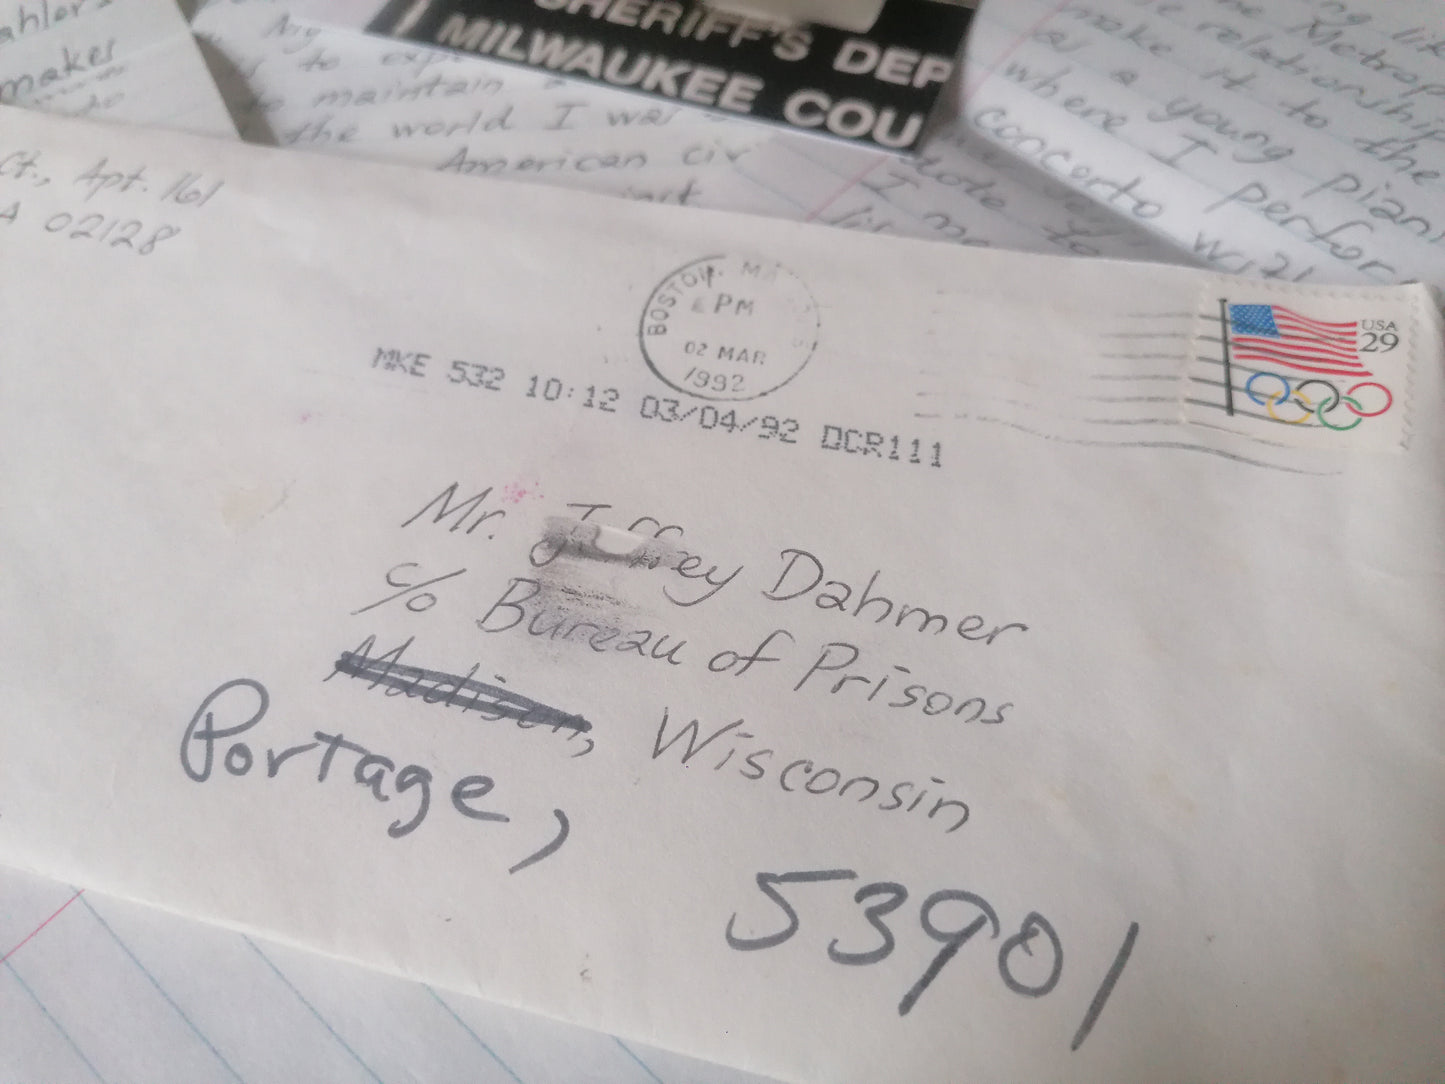 ahler
maker
to
to maintain
the world I was
American civ
SHERIFF'S DEP
MILWAUKEE COU
Metrop
relationship
make it to the
as a young pian
where I perfor
concerto wi
Ct., Apt. 161
A 02128
BOSTON, MA
PM
02 MAR
1992
USA
29
MKE 532 10:12 03/04/92 DCR111
Mr. Jeffrey Dahmer
c/o Bureau of Prisons
Madison, Wisconsin
Portage,
53901